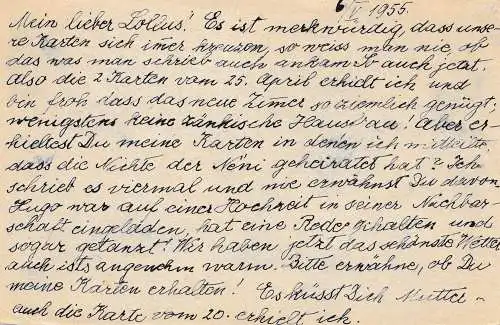 6/V 1955.
Mein lieber Loldus! Es ist merkwürdig, dass unse-
re Karten sich imer kreuzen, so weiss man nie, ob
das was man schrieb auch ankam. So auch jetzt.
Also die 2 Karten vom 25. April erhielt ich und
bin froh dass das neue Zimer so ziemlich genügt,
wenigstens keine zänkische Hausfrau! Aber er-
hieltest Du meine Karten in denen ich mitteilte
dass die Nichte der Néni geheiratet hat? Ich
schrieb es viermal und nie erwähnst Du davon,
Hugo war auf einer Hochzeit in seiner Nachbar-
schaft eingeladen, hat eine Rede gehalten und
sogar getanzt! Wir haben jetzt das schönste Wetter
auch ists angenehm warm. Bitte erwähne, ob Du
meine Karten erhalten! Es küsst Dich Mutter
auch die Karte vom 20. erhielt ich.